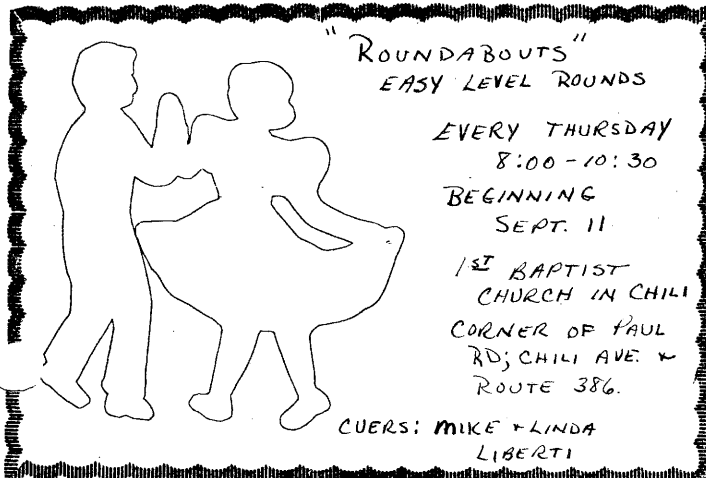 "ROUNDABOUTS"
EASY LEVEL ROUNDS
EVERY THURSDAY
8:00-10:30
BEGINNING
SEPT. 11
1ST BAPTIST
CHURCH IN CHILI
CORNER OF PAUL
RD; CHILI AVE. &
ROUTE 386.
CUERS: MIKE + LINDA
LIBERTI